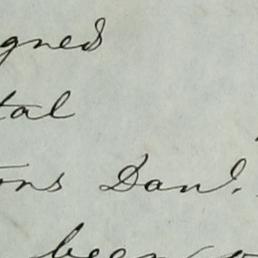 gned
tal
ons Danl.
been